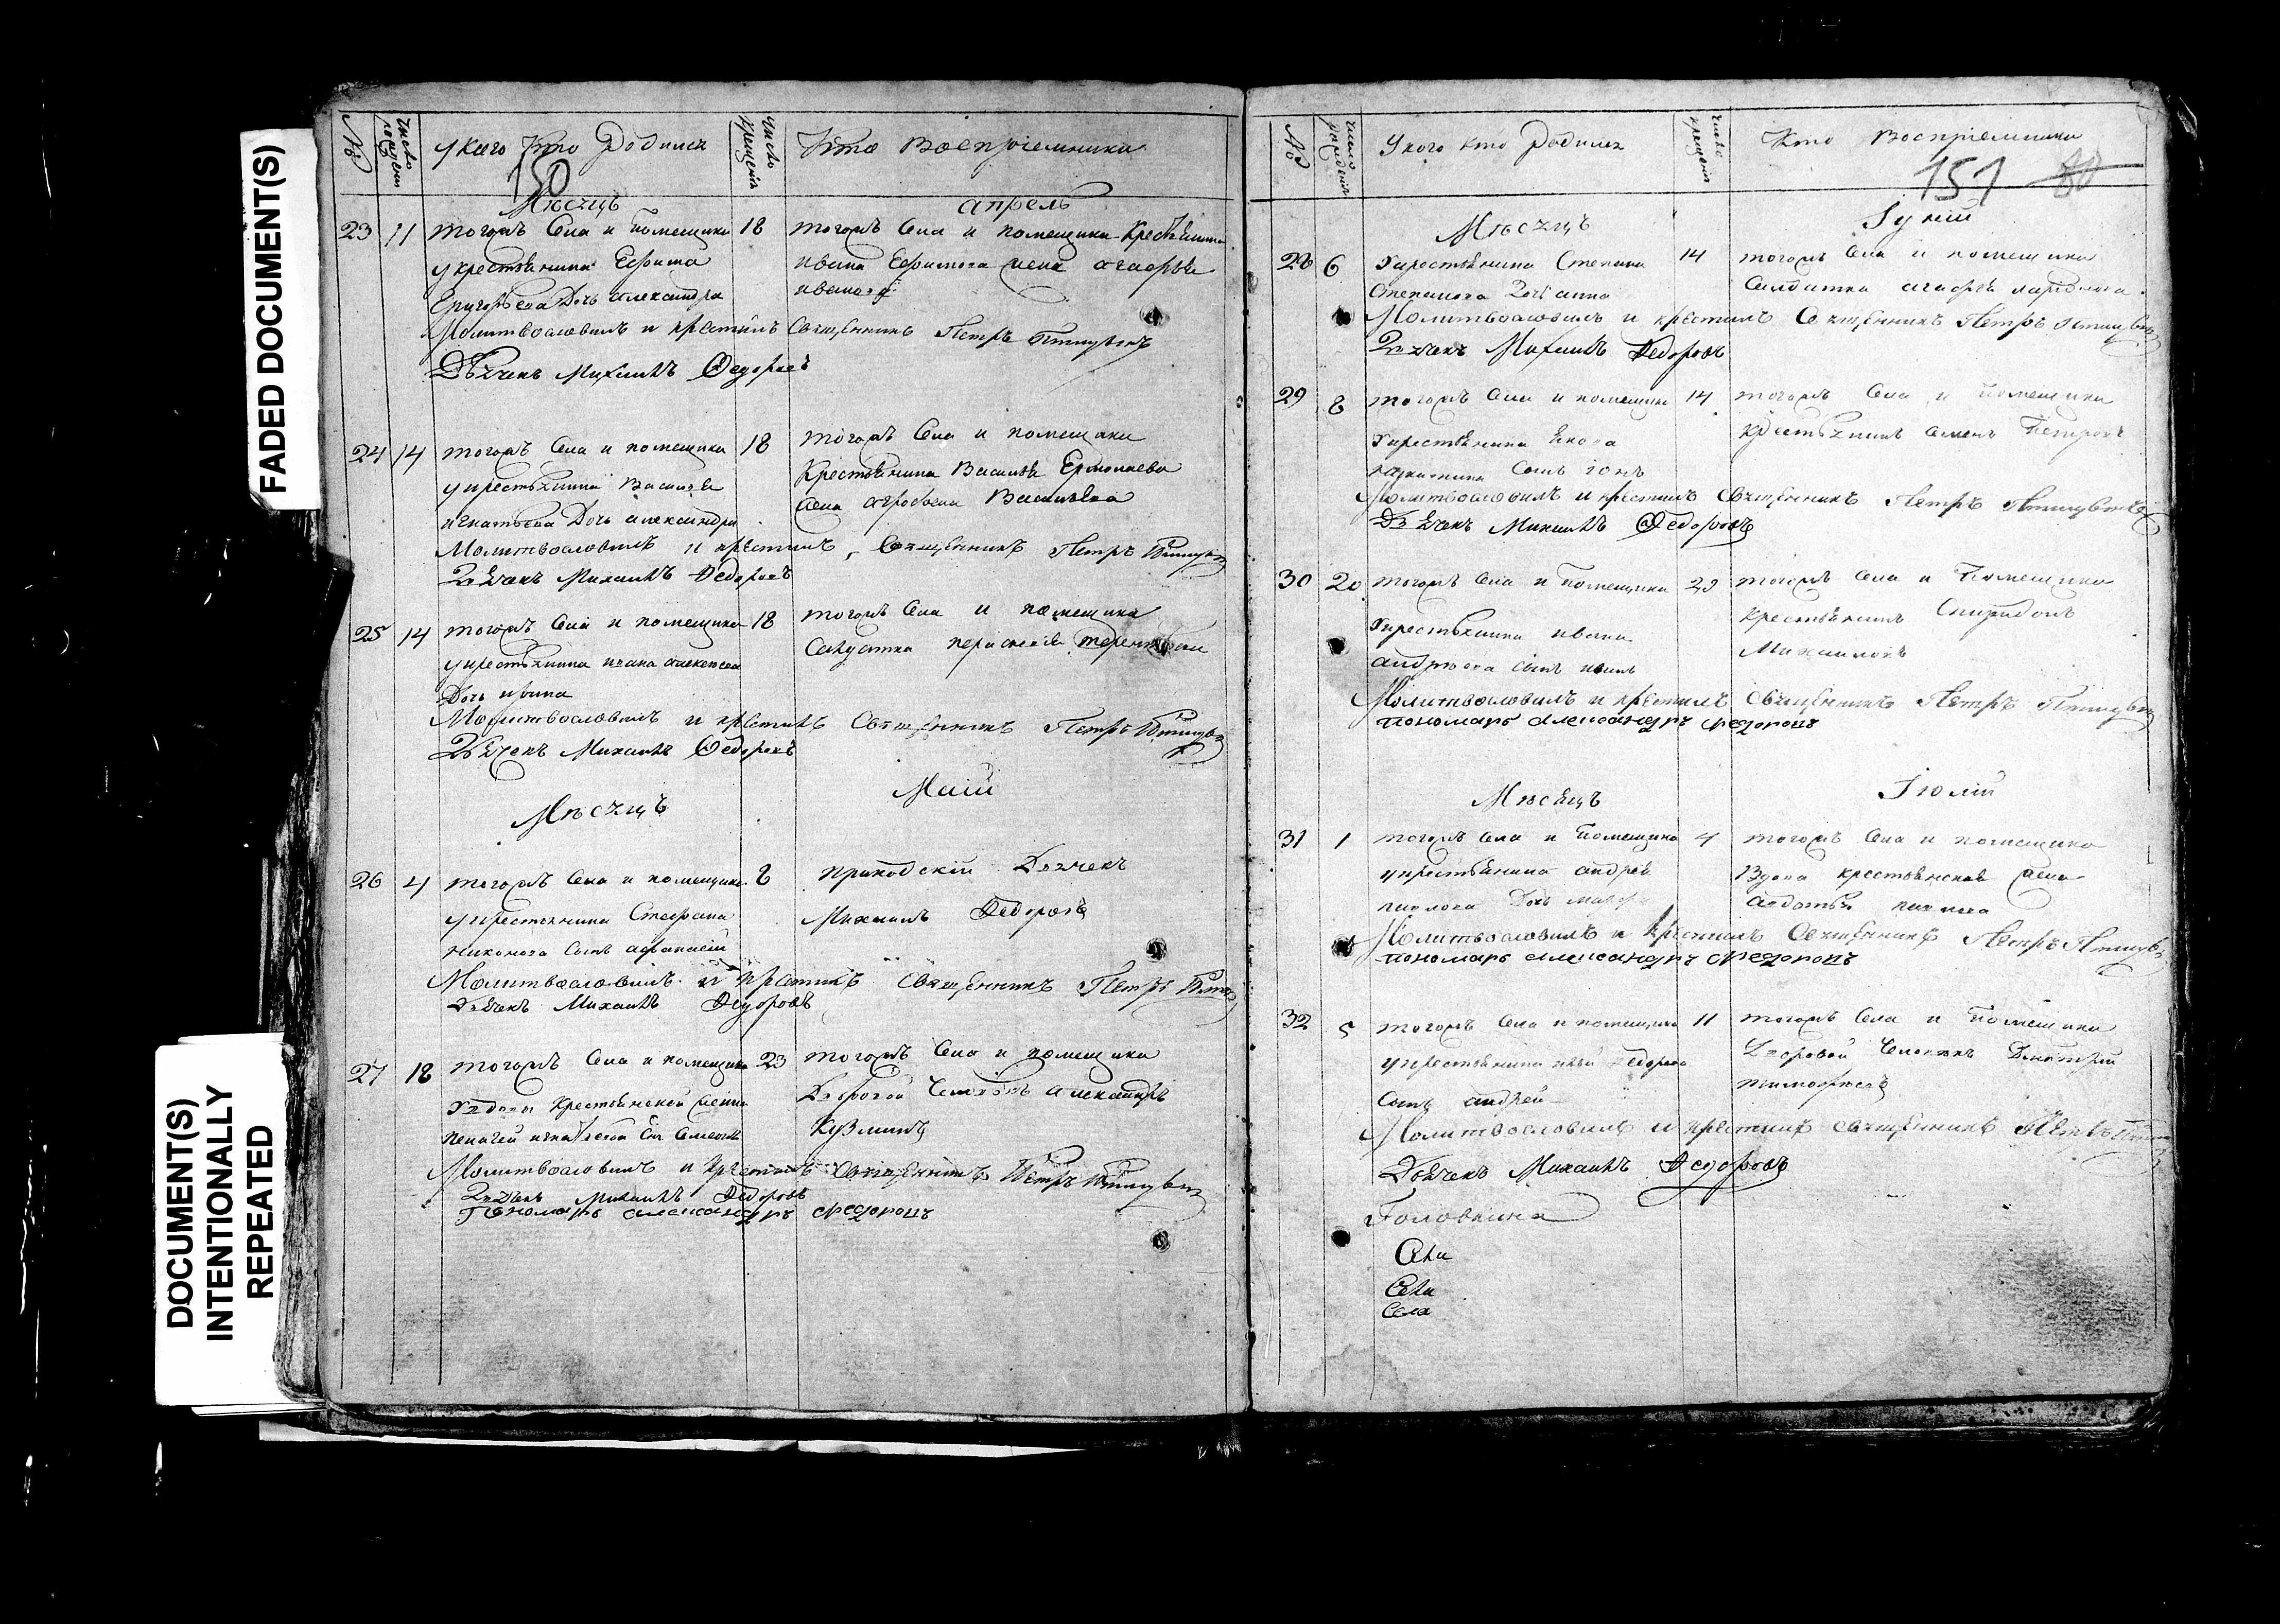 FADED DOCUMENT(S)
DOCUMENT(S)
INTENTIONALLY
REPEATED
№
число рождения
у каго кто родился
число крещенія
Кто Восприемники
150
Мѣсяцъ
апрель
23 11 тогожъ села и помещика 18
укрестьянина Ефима
Григорьева Дочь александра
тогожъ села и помещика крестьянина
ивана Ефимова жена агафья
иванова
Молитвословилъ и крестилъ Священникъ Петръ
Дьячекъ Михаилъ Федоровъ
24 14 тогожъ села и помещика 18
укрестьянина Василья
игнатьева Дочь александра
тогожъ села и помещика
Крестьянина Василья Ермолаева
жена Васильева
Молитвословилъ и крестилъ Священникъ Петръ
Дьячекъ Михаилъ Федоровъ
25 14 тогожъ села и помещика 18
укрестьянина ивана алексеева
Дочь ирина
тогожъ села и помещика
Молитвословилъ и крестилъ Священникъ Петръ
Дьячекъ Михаилъ Федоровъ
Мѣсяцъ
Маій
26 4 тогожъ села и помещика 8
укрестьянина Стефана
никонова сынъ афанасій
приходскій Дьячекъ
Михаилъ Федоровъ
Молитвословилъ и крестилъ Священникъ Петръ
Дьячекъ Михаилъ Федоровъ
27 18 тогожъ села и помещика 23
увдовы крестьянской жены
тогожъ села и помещика
Дворовой человекъ александръ
Кузминъ
Молитвословилъ и крестилъ Священникъ Петръ
Дьячекъ Михаилъ Федоровъ
Пономарь александръ федоровъ
№
число рождения
У кого кто родился
число крещенія
Кто восприемники
151
80
Мѣсяцъ
Іуній
28 6 укрестьянина Степана 14
Степанова Дочь анна
тогожъ села и помещика
Салдатка агафья
Молитвословилъ и крестилъ Священникъ Петръ
Дьячекъ Михаилъ Федоровъ
29 8 тогожъ села и помещика 14
укрестьянина якова
сынъ
тогожъ села и помещика
крестьянинъ семенъ Петровъ
Молитвословилъ и крестилъ Священникъ Петръ
Дьячекъ Михаилъ Федоровъ
30 20 тогожъ села и помещика 23
укрестьянина ивана
андреева сынъ
тогожъ села и помещика
крестьянинъ Спиридонъ
Михаиловъ
Молитвословилъ и крестилъ Священникъ Петръ
пономарь александръ федоровъ
Мѣсяцъ
Іюлій
31 1 тогожъ села и помещика 4
укрестьянина андрея
павлова Дочь
тогожъ села и помещика
Вдова крестьянская жена
авдотья
Молитвословилъ и крестилъ Священникъ Петръ
пономарь александръ федоровъ
32 5 тогожъ села и помещика 11
укрестьянина федорова
сынъ андрей
тогожъ села и помещика
Дворовой человекъ Дмитрій
тимофеевъ
Молитвословилъ и крестилъ священникъ Петръ
Дьячекъ Михаилъ Федоровъ
Головкина
Села
Села
Села